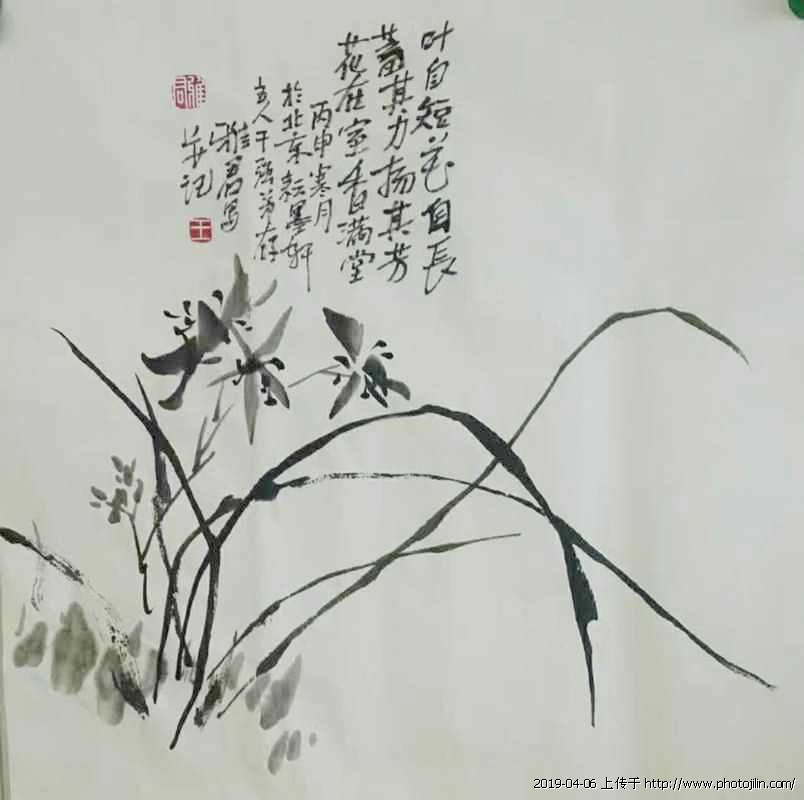 叶自短花自長
蓄其力揚其芳
花在室香满堂
丙申寒月
於北京耘墨轩
主人于强芳存
雅君写
并记
雅君
王
2019-04-06 上传于 http://www.photojilin.com/